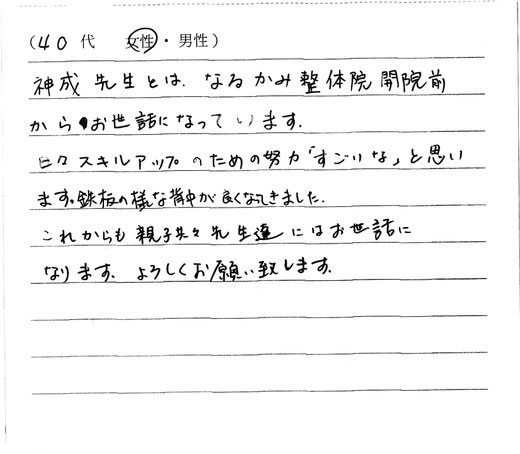 (40代 女性・男性)
神成先生とは、なるかみ整体院開院前
からお世話になっています。
日々スキルアップのための努力「すごいな」と思い
ます。鉄板の様な背中が良くなってきました。
これからも親子共々先生達にはお世話に
なります。よろしくお願い致します。